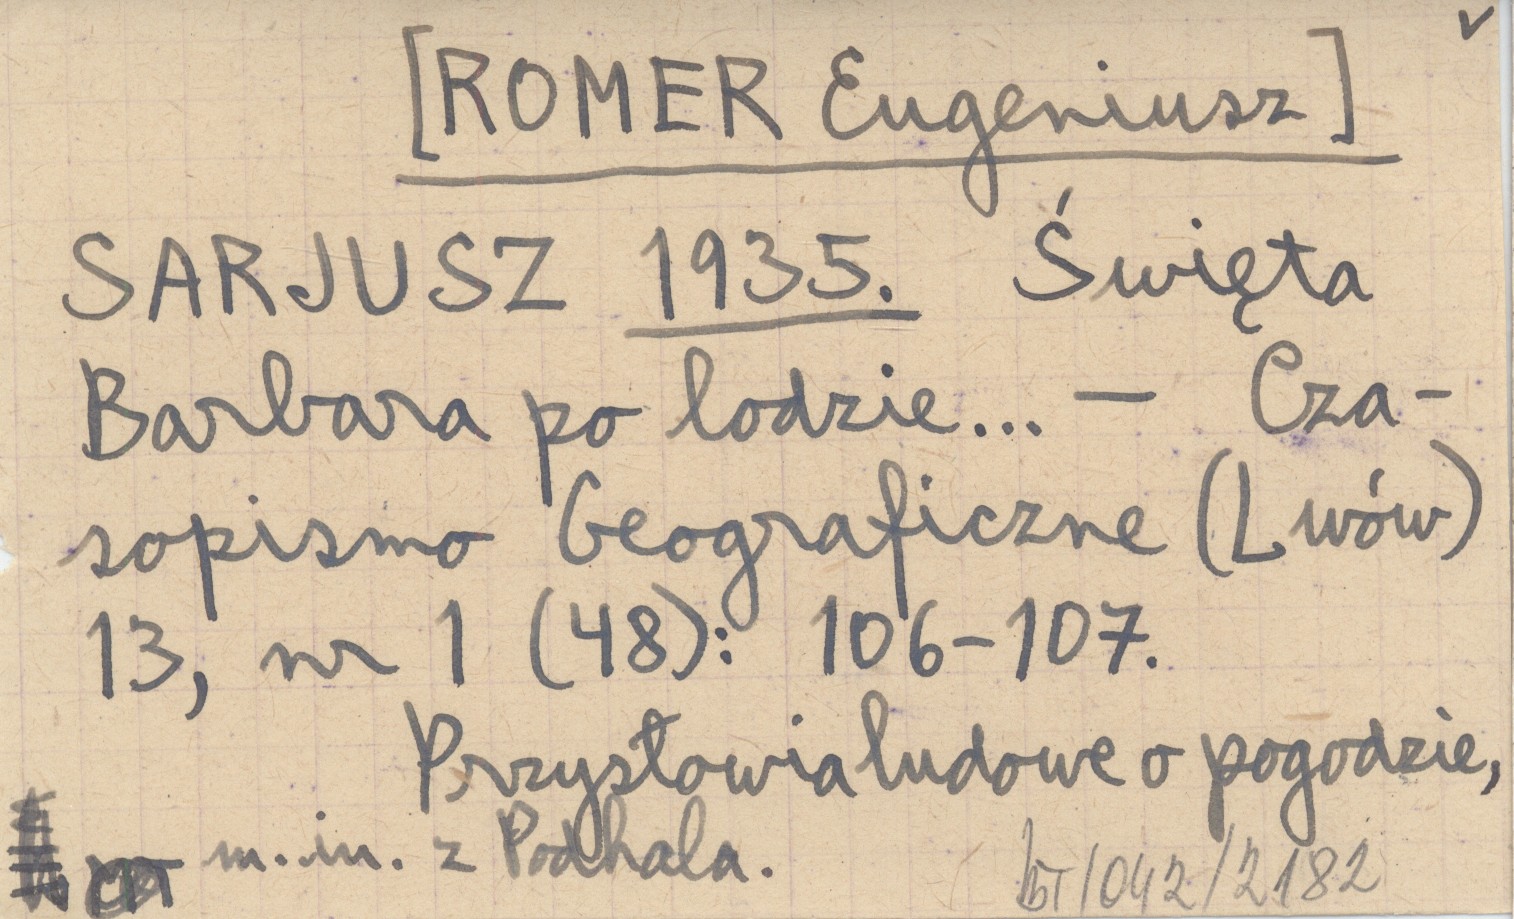 [ROMER Eugeniusz]
SARJUSZ 1935. Święta
Barbara po lodzie... — Cza-
sopismo Geograficzne (Lwów)
13, nr 1 (48): 106-107.
Przysłowia ludowe o pogodzie,
m.in. z Podhala.
/042/2182